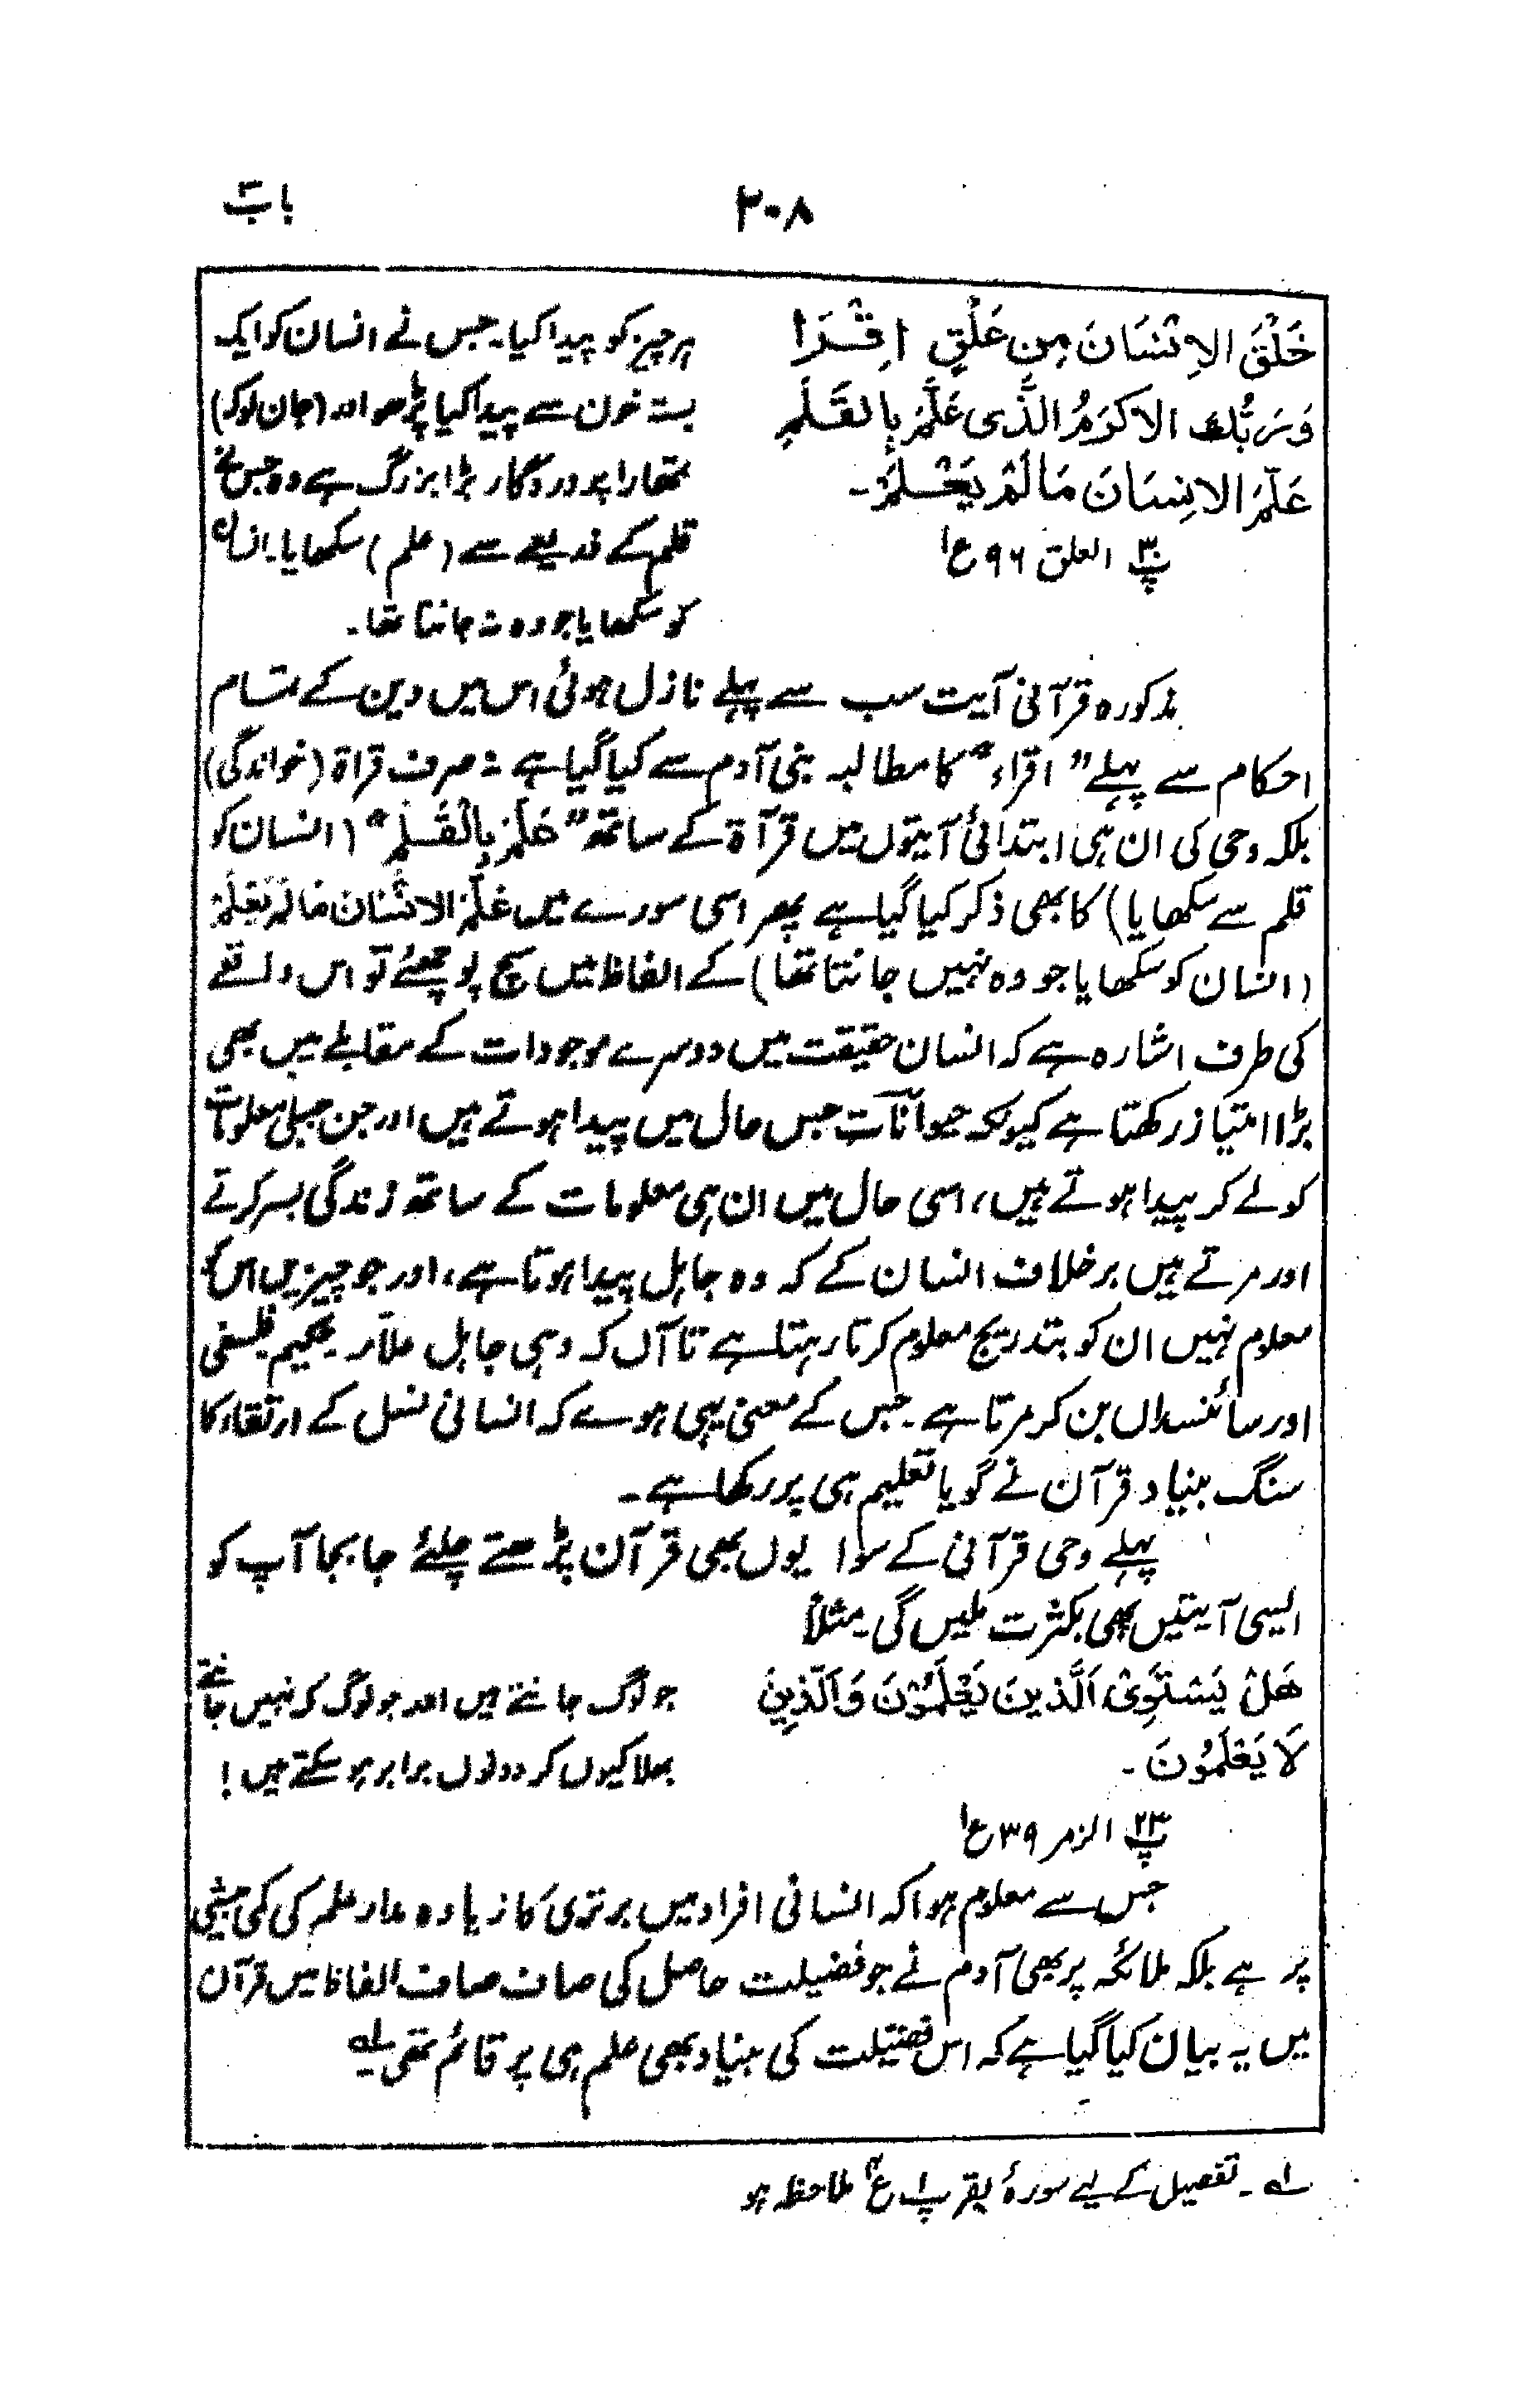 ۲۰۸
باب۳
خَلَقَ الاِنْسَانَ مِن عَلْقٍ اِقْرَا
وَرَبُّكَ الاكرَمُ الَّذِی عَلَّمَ بِالقَلَمِ
عَلَّمَ الاِنسَانَ مَالَمْ يَعْلَمْ۔
پ۳۰ العلق ۹۶ ع۱
ہر چیز کو پیدا کیا۔ جس نے انسان کو ایک
بستہ خون سے پیدا کیا پڑھو اور (جان لو کہ)
تمھارا پروردگار بڑا بزرگ ہے وہ جس نے
قلم کے ذریعے سے (علم) سکھایا۔ انسان
کو سکھایا جو وہ نہ جانتا تھا۔
مذکورہ قرآنی آیت سب سے پہلے نازل ہوئی اس میں دین کے تمام
احکام سے پہلے ”اقراء“ کا مطالبہ بنی آدم سے کیا گیا ہے نہ صرف قراۃ (خواندگی)
بلکہ وحی کی ان ہی ابتدائی آیتوں میں قرآۃ کے ساتھ ”عَلَّمَ بِالْقَلَمِ“ (انسان کو
قلم سے سکھایا) کا بھی ذکر کیا گیا ہے پھر اسی سورے میں عَلَّمَ الاِنْسَانَ مَالَمْ یَعْلَمْ
(انسان کو سکھایا جو وہ نہیں جانتا تھا) کے الفاظ میں سچ پوچھئے تو اس واقعے
کی طرف اشارہ ہے کہ انسان حقیقت میں دوسرے موجودات کے مقابلے میں بھی
بڑا امتیاز رکھتا ہے کیونکہ حیوانات جس حال میں پیدا ہوتے ہیں اور جن جبلی معلومات
کو لے کر پیدا ہوتے ہیں، اسی حال میں ان ہی معلومات کے ساتھ زندگی بسر کرتے
اور مرتے ہیں برخلاف انسان کے کہ وہ جاہل پیدا ہوتا ہے، اور جو چیزیں اس کو
معلوم نہیں ان کو بتدریج معلوم کرتا رہتا ہے تا آں کہ وہی جاہل علّامہ۔ حکیم فلسفی
اور سائنسداں بن کر مرتا ہے۔ جس کے معنی یہی ہوے کہ انسانی نسل کے ارتقاء کا
سنگ بنیاد قرآن نے گویا تعلیم ہی پر رکھا ہے۔
پہلے وحی قرآنی کے سوا یوں بھی قرآن پڑھتے چلئے جابجا آپ کو
ایسی آیتیں بھی بکثرت ملیں گی۔ مثلاً
هَلْ یَسْتَوِی الَّذینَ یَعْلَمُوْنَ وَالَّذِینَ
لَا یَعْلَمُونَ۔
پ۲۳ الزمر ۳۹ ع۱
جو لوگ جانتے ہیں اور جو لوگ کہ نہیں جانتے
بھلا کیوں کر دونوں برابر ہو سکتے ہیں!
جس سے معلوم ہوا کہ انسانی افراد میں برتری کا زیادہ مدار علم کی کمی بیشی
پر ہے بلکہ ملائکہ پر بھی آدم نے جو فضیلت حاصل کی صاف صاف الفاظ میں قرآن
میں یہ بیان کیا گیا ہے کہ اس فضیلت کی بنیاد بھی علم ہی پر قائم تھی۔ لہ
لہ۔ تفصیل کے لیے سورۂ بقر پ۱ ع۴ ملاحظہ ہو